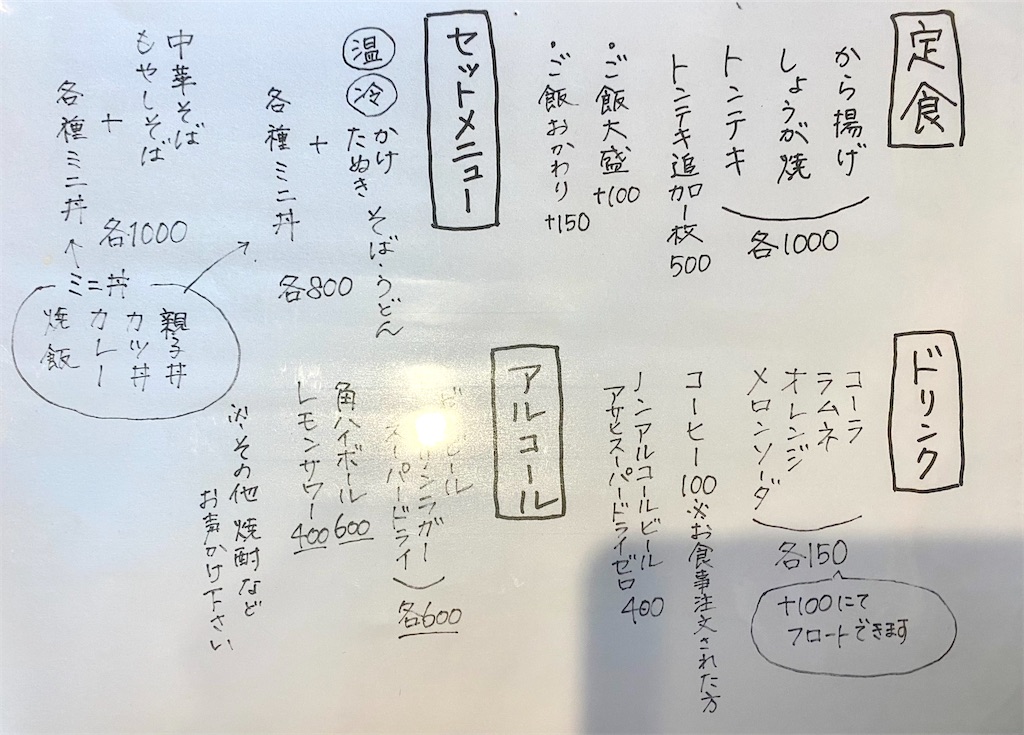 定食
から揚げ
しょうが焼
トンテキ
各1000
トンテキ追加一枚
500
・ご飯大盛
+100
・ご飯おかわり
+150
セットメニュー
温
冷
かけ
たぬき
そば・うどん
+
各種ミニ丼
各800
中華そば
もやしそば
+
各種ミニ丼
各1000
ミニ丼
親子丼
カツ丼
カレー
焼飯
ドリンク
コーラ
ラムネ
オレンジ
メロンソーダ
各150
+100にて
フロートできます
コーヒー100※お食事注文された方
ノンアルコールビール
アサヒスーパードライゼロ
400
アルコール
ール
ラガー
スーパードライ
各600
角ハイボール
600
レモンサワー
400
※その他焼酎など
お声かけ下さい